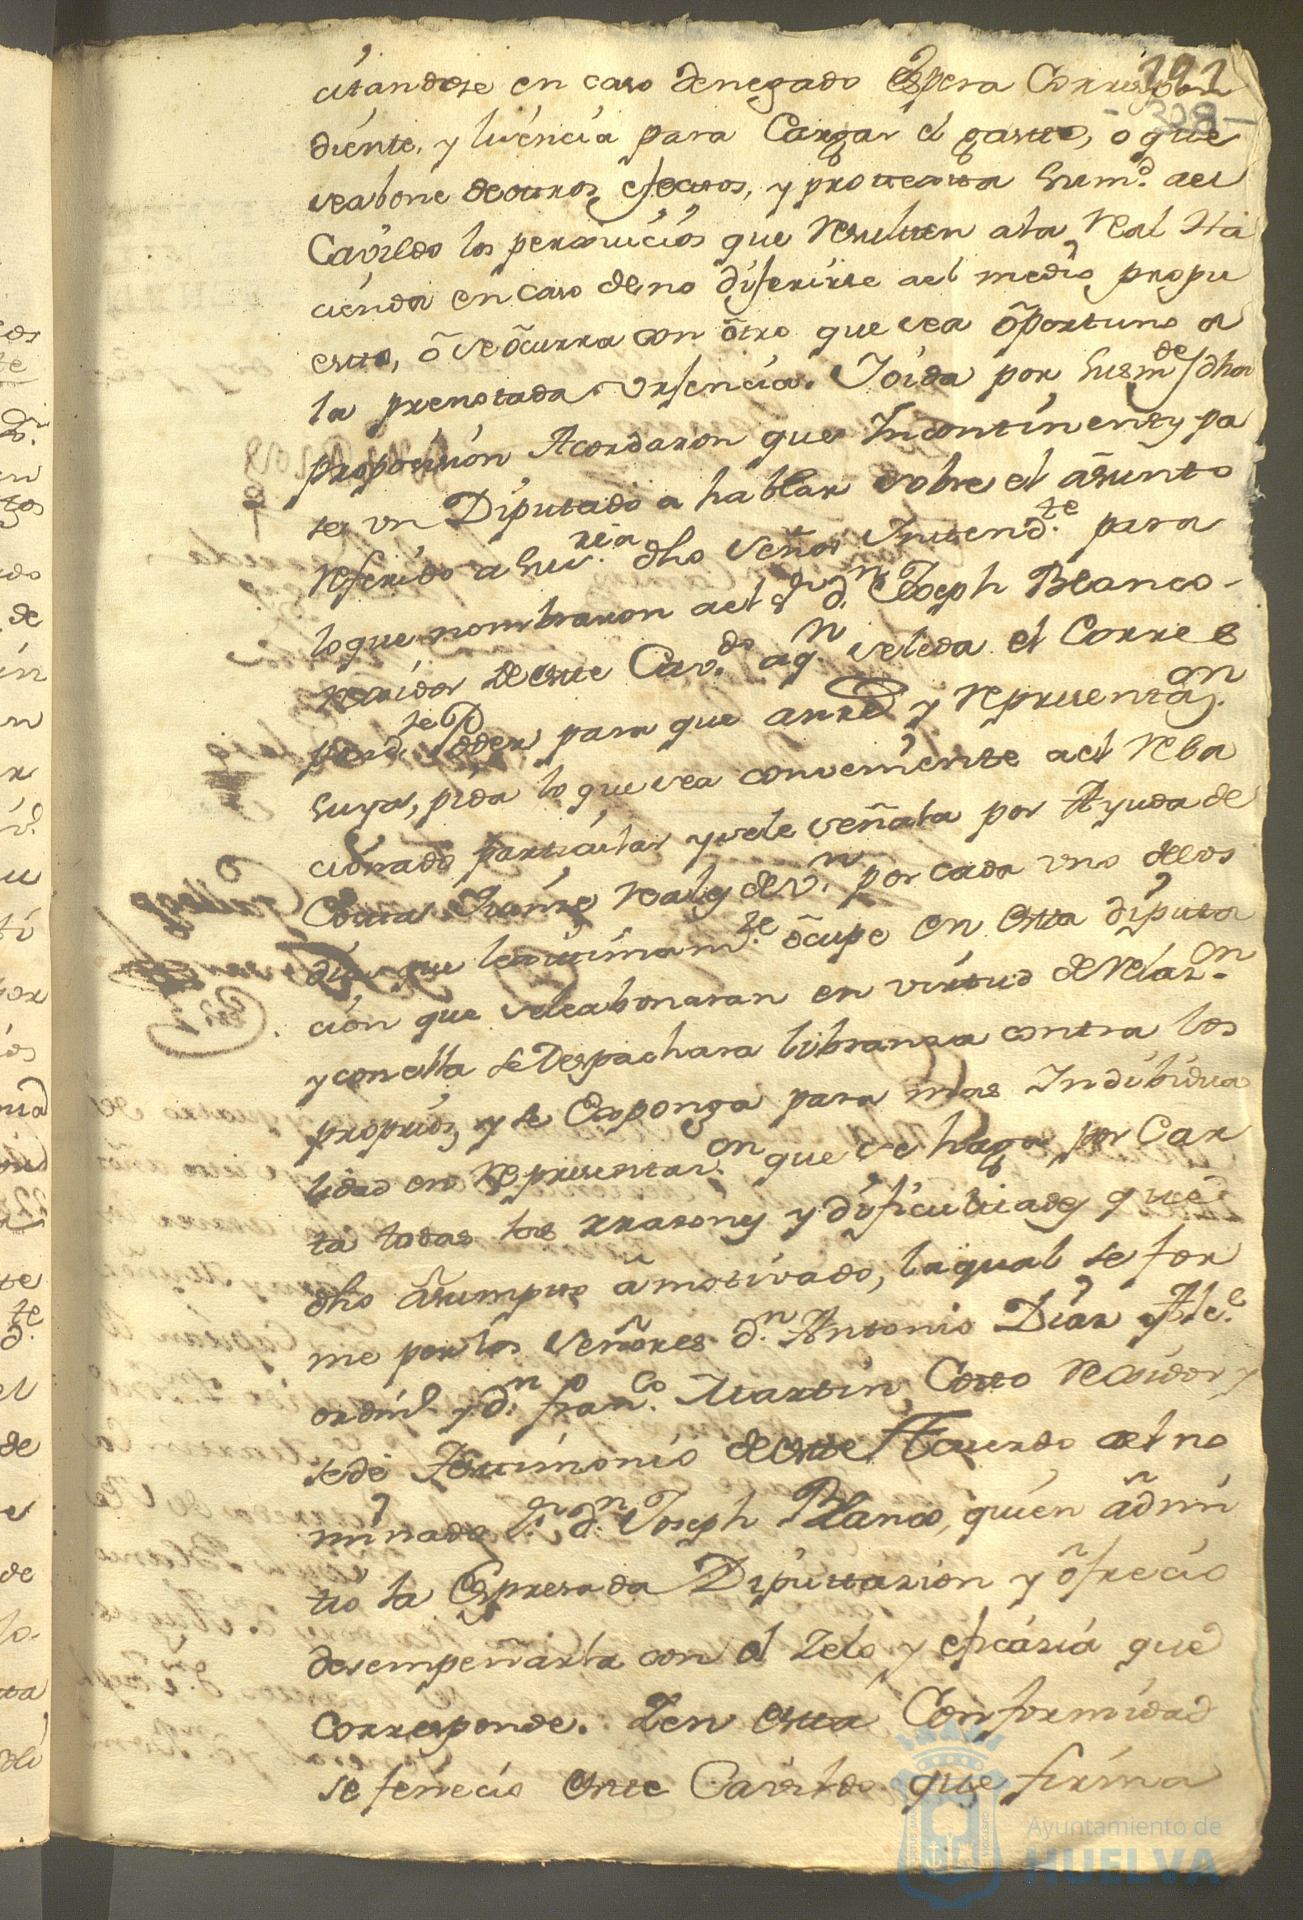 192
- 308 -
citandose en caso denegado Espera Correspon
diente, y lizencia para Cargar el gasto, o que
se abone de otros efectos, y protesta su md. ael
Cavildo los perxuicios que resulten ala Real Ha
cienda en caso de no diferirse ael medio propu
esto, ô se ôcurra con ôtro que sea ôportuno a
la prenotada urgencia. Y oida por sus mdes dha
proposision Acordaron que Incontinenty pa
se un Diputado a hablar sobre el asunto
referido a su sria. dho señor Yntendte. para
lo que nombraron ael Sr. dn. Joseph Blanco
rexidor de este Cavdo. aqn. se le da el Corres
pondte Poder para que antte y representason.
suya, pida lo que sea conveniente ael rela
cionado particular y se le señala por Ayuda de
Costa reales de vn. por cada uno delos
dias que lexitimamte. ôcupe en esta diputa
cion que se le abonaran en virtud de relazon.
y con ella se Despachara libranza contra los
propios, y se Exponga para mas Indibidua
lidad en representazon. que se haga por Car
ta todas las rrasones y dificultades que
dho âsumpto â motivado, la qual se for
me por los Señores dn. Antonio Diaz Alce.
ordinº. y dn. Franco. Martin Cotto rexidor y
se dé Testimonio de este Acuerdo ael no
minado Sr. dn. Joseph Blanco, quien âdmi
tio la Espresada Diputtazion y ôfrecio
desempeñarla con el zelo y eficazia que
corresponde. Y en esta Conformidad
se fenecio este Cavildo que firma
Ayuntamiento de
HUELVA